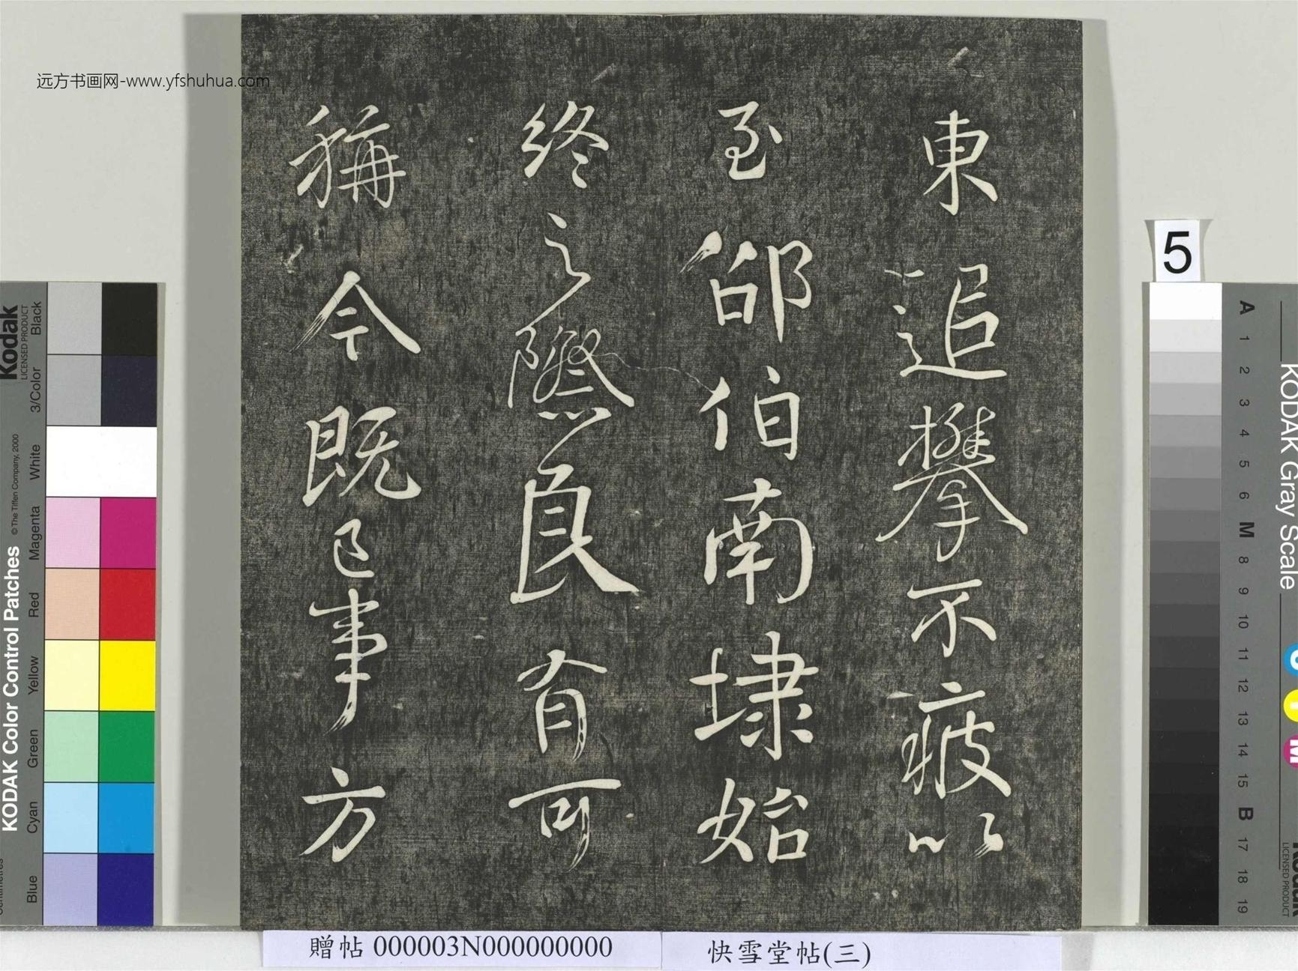 東追攀不疲以
至邵伯南埭始
終之際良有可
稱今既已事方
远方书画网-www.yfshuhua.com
5
贈帖 000003N000000000
快雪堂帖(三)
KODAK Color Control Patches
© The Tiffen Company, 2000
Kodak
LICENSED PRODUCT
Blue
Cyan
Green
Yellow
Red
Magenta
White
3/Color
Black
KODAK Gray Scale
A
1
2
3
4
5
6
M
8
9
10
11
12
13
14
15
B
17
18
19